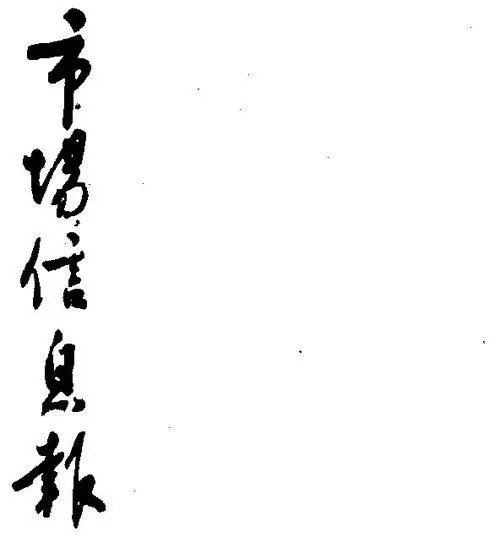 市場信息報